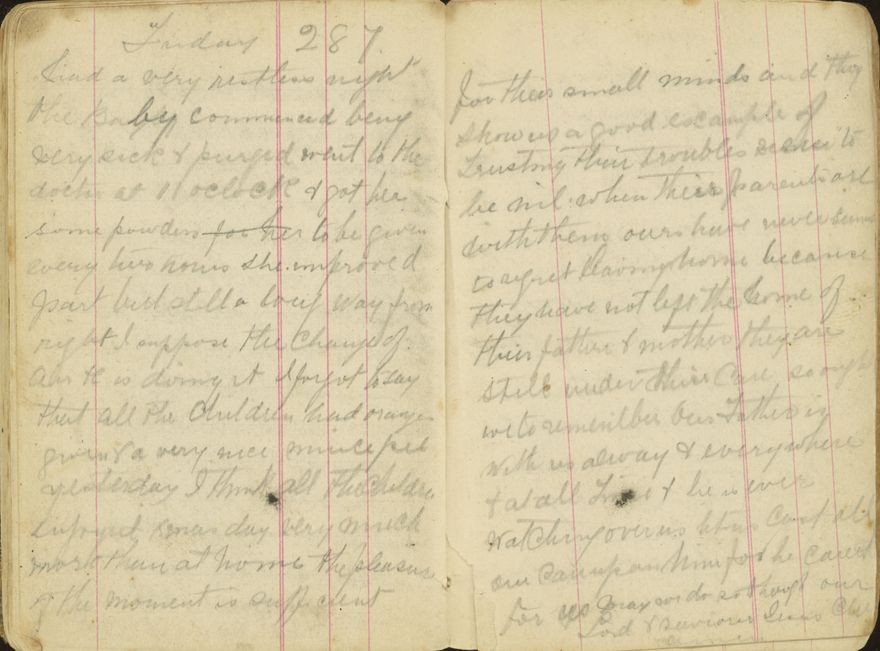 Friday 287.
Had a very restless night
the Baby commenced being
very sick & purged went to the
doctr at 11 oclock & got her
some powders for her to be given
every two hours she improved
part but still a long way from
right I suppose the change of
Air &c is doing it I forgot to say
that all the Children had oranges
given & a very nice mince pie
yesterday I think all the Children
enjoyed Xmas day very much
more than at home the pleasure
of the moment is sufficient
for their small minds and they
show us a good example of
trusting their troubles seems to
be nil when their parents are
with them ours have never seems
to regret leaving home because
they have not left the home of
their father & mother they are
still under their care so ought
we to remember Our Father is
with us alway & everywhere
& at all Times & he is ever
watching over us let us cast all
our care upon him for he careth
for us may we do so though our
Lord & saviour Jesus Christ
amen